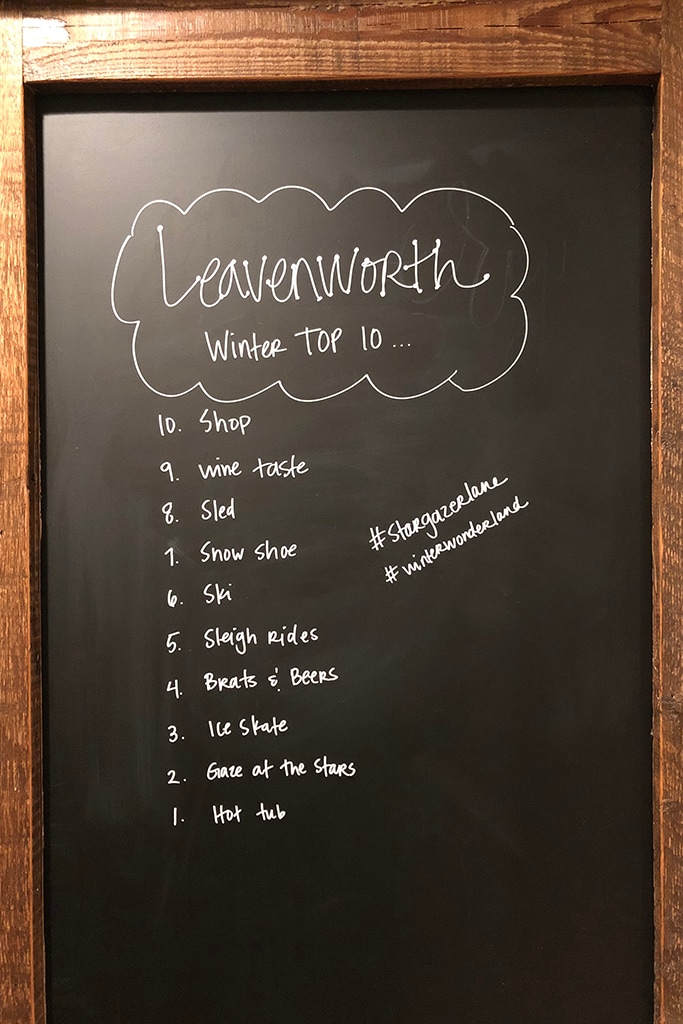 Leavenworth
Winter Top 10 ...
10. Shop
9. wine taste
8. Sled
7. Snow shoe
6. Ski
5. Sleigh Rides
4. Brats & Beers
3. Ice Skate
2. Gaze at the Stars
1. Hot tub
#Stargazerlane
#winterwonderland